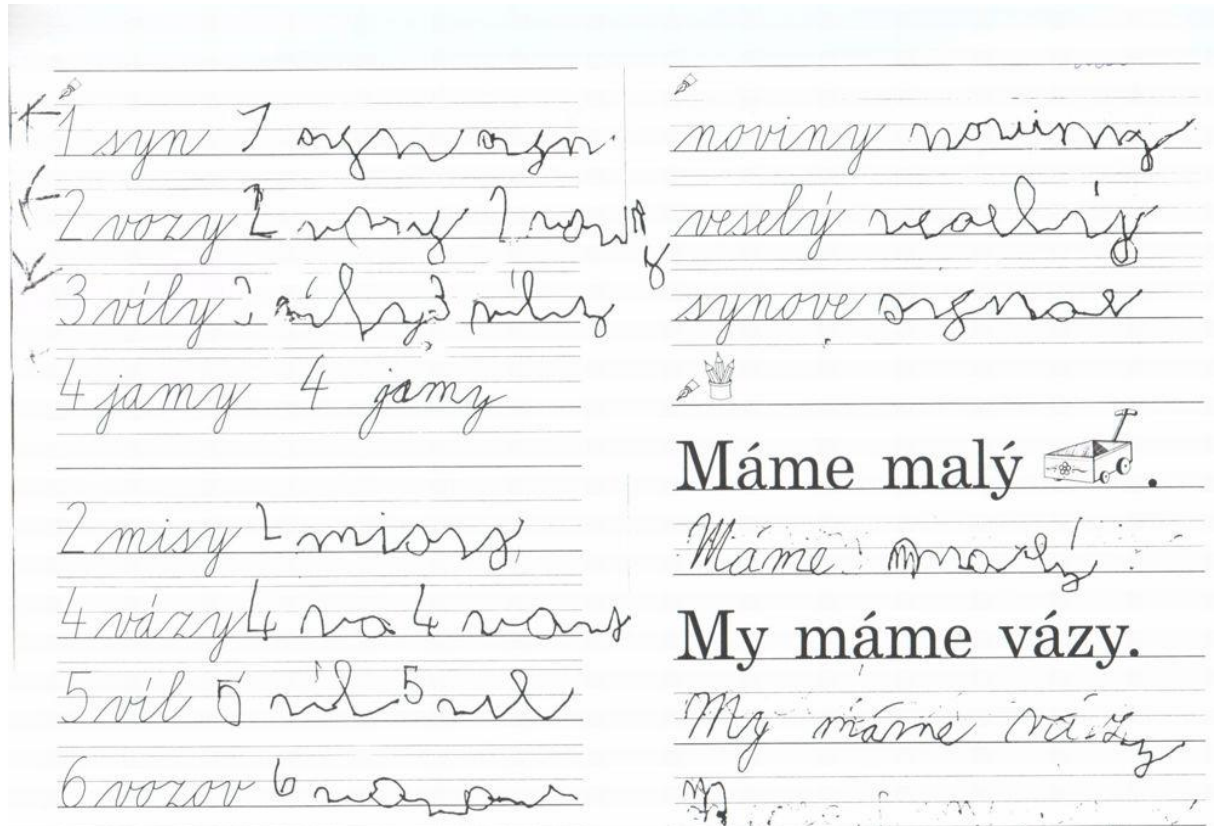 1 syn 1 syn syn
2 vozy 2 vozy 2
3 víly 3 víly 3 víly
4 jamy 4 jamy
2 misy 2 misy
4 vázy 4 va 4 vazy
5 víl 5 víl 5 vil
6 vozov 6
noviny noviny
veselý veselý
synove
Máme malý .
Máme malý
My máme vázy.
My máme vázy